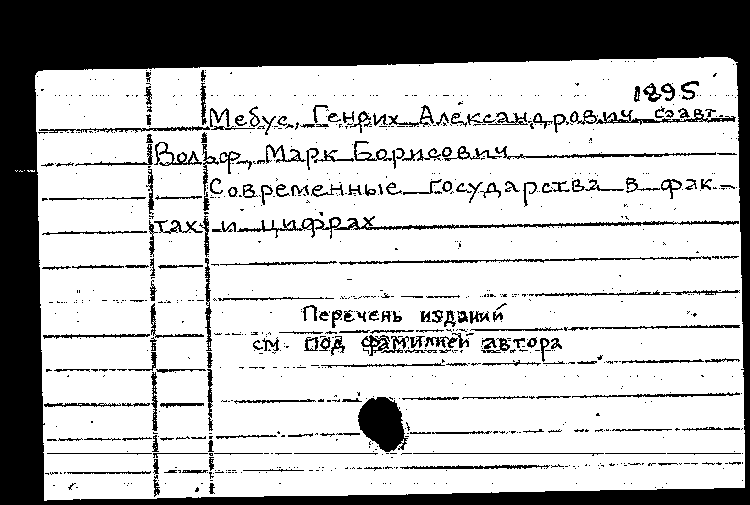 1895
Мебус, Генрих Александрович, соавт.
Вольф, Марк Борисович.
Современные государства в фак-
тах и цифрах
Перечень изданий
см. под фамилией автора